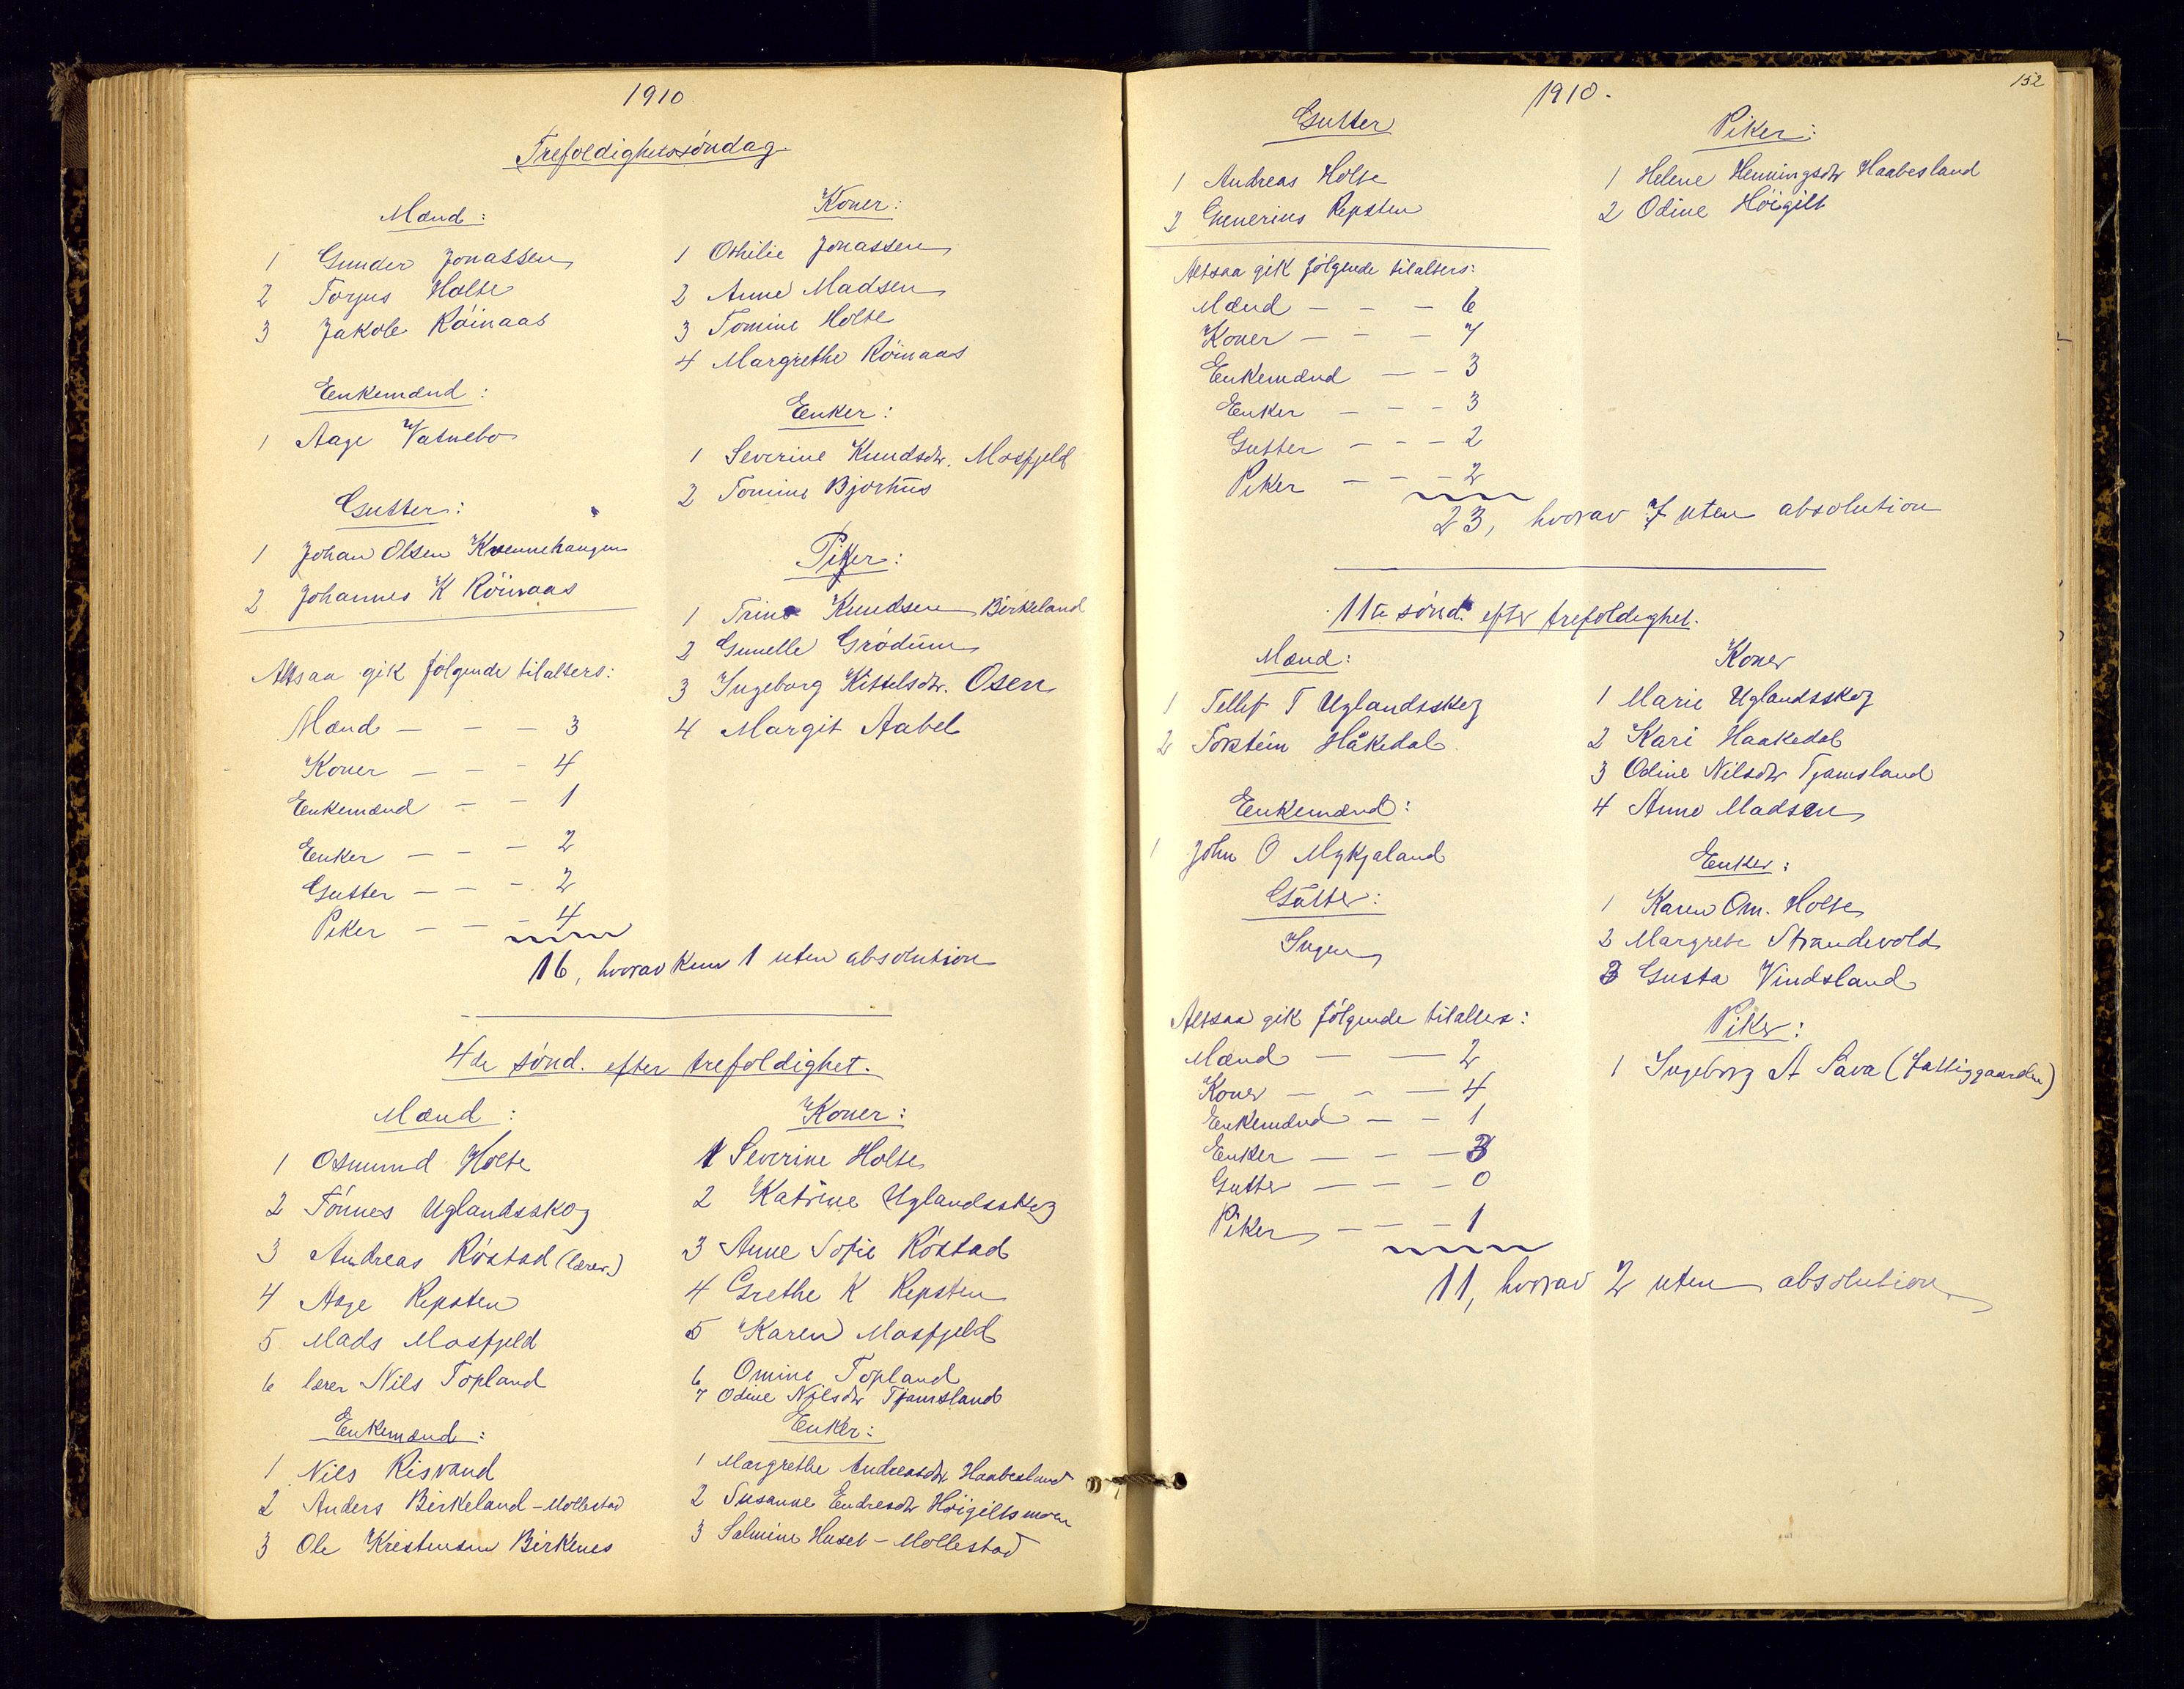 1910
Trefoldighetssöndag
Mænd:
1 Gunder Jonassen
2 Torjus Holte
3 Jakob Röinaas
Enkemænd:
1 Aage Vatnebo
Gutter:
1 Johan Olsen Kvennehaugen
2 Johannes K Röinaas
Altsaa gik følgende tilalters:
Mænd — — — 3
Koner — — — 4
Enkemænd — — 1
Enker — — — 2
Gutter — — — 2
Piker — — — 4
16, hvorav kun 1 uten absolution
Koner:
1 Othilie Jonassen
2 Anne Madsen
3 Tomine Holte
4 Margrethe Röinaas
Enker:
1 Severine Knudsdtr. Mosfjeld
2 Tomine Bjorhus
Piker:
1 Trine Knudsen Birkeland
2 Gunelle Grödum
3 Ingeborg Kittelsdtr. Osen
4 Margit Aabel
4de sönd. efter trefoldighet.
Mænd:
1 Osmund Holte
2 Tönnes Uglandsskog
3 Andreas Röstad (lærer)
4 Aage Repsten
5 Mads Mosfjeld
6 lærer Nils Topland
Enkemænd:
1 Nils Risvand
2 Anders Birkeland-Mollestad
3 Ole Kristensen Birkenes
Koner:
1 Severine Holte
2 Katrine Uglandsskog
3 Anne Sofie Röstad
4 Grethe K Repsten
5 Karen Mosfjeld
6 Omine Topland
7 Odine Nilsdtr Tjamsland
Enker:
1 Margrethe Andreasdtr Haabesland
2 Susanne Endresdtr Höigiltsmoen
3 Salmine Huset-Mollestad
152
1910.
Gutter
1 Andreas Holte
2 Gunerius Repsten
Piker:
1 Helene Henningsdtr Haabesland
2 Odine Höigilt
Altsaa gik følgende tilalters:
Mænd — — — 6
Koner — — — 7
Enkemænd — — 3
Enker — — — 3
Gutter — — — 2
Piker — — — 2
23, hvorav 7 uten absolution
11te sönd. efter trefoldighet.
Mænd:
1 Tellef T Uglandsskog
2 Torstein Håkedal
Enkemænd:
1 John O Mykjaland
Gutter:
Ingen
Koner
1 Marie Uglandsskog
2 Kari Haakedal
3 Odine Nilsdtr Tjamsland
4 Anne Madsen
Enker:
1 Karen Om. Holte
2 Margrete Strandevold
3 Gusta Vindsland
Piker:
1 Ingeborg A Lava (Fattiggaarden)
Altsaa gik følgende tilalters:
Mænd — — 2
Koner — — — 4
Enkemænd — — 1
Enker — — — 3
Gutter — — — 0
Piker — — — 1
11, hvorav 2 uten absolution